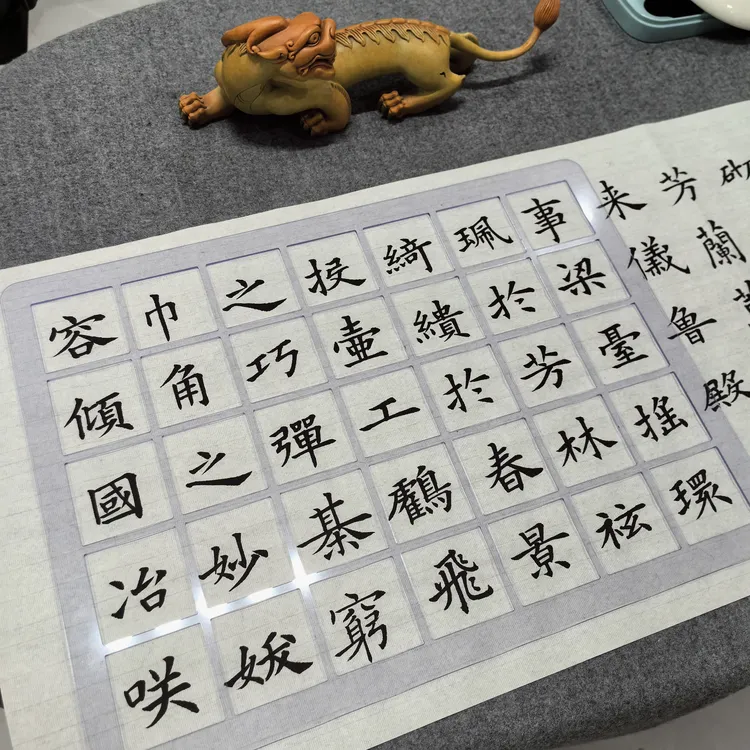 砌
芳蘭
来儀魯殿
事梁臺搖環
珮於芳林袨
綺繢於春景
投壺工鸛飛
之巧彈棊窮
巾角之妙
容傾國冶咲